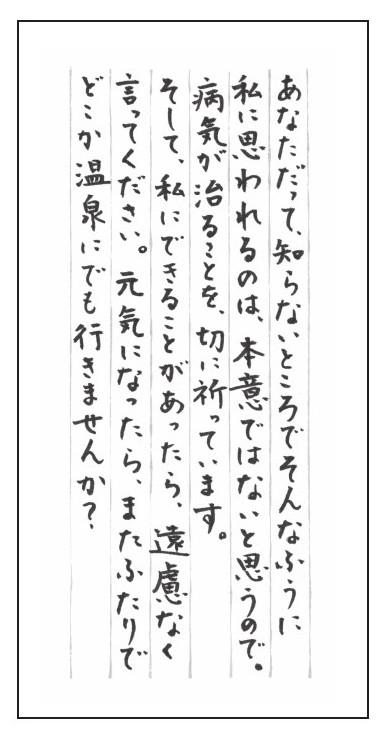 あなただって、知らないところでそんなふうに
私に思われるのは、本意ではないと思うので。
病気が治ることを、切に祈っています。
そして、私にできることがあったら、遠慮なく
言ってください。元気になったら、またふたりで
どこか温泉にでも行きませんか？